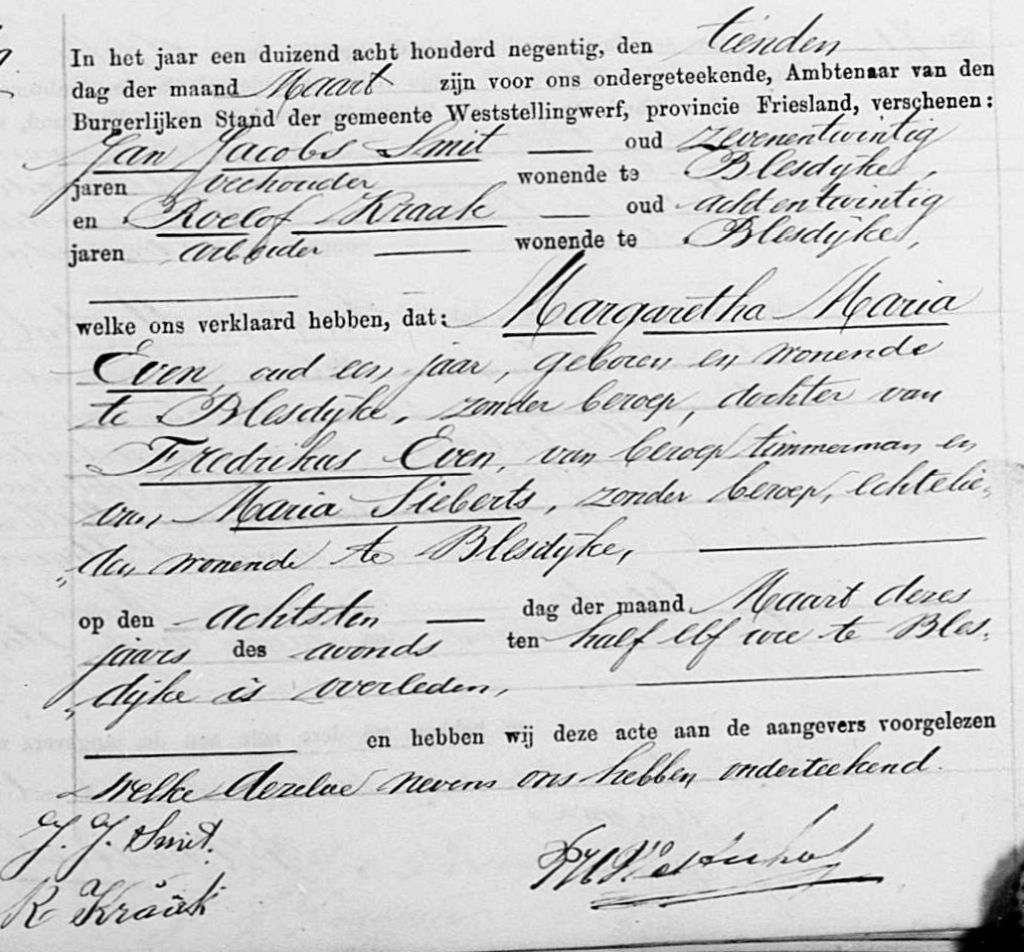 In het jaar een duizend acht honderd negentig, den tienden
dag der maand Maart zijn voor ons ondergeteekende, Ambtenaar van den
Burgerlijken Stand der gemeente Weststellingwerf, provincie Friesland, verschenen:
Jan Jacobs Smit oud zevenentwintig
jaren veehouder wonende te Blesdijke,
en Roelof Kraak oud achtentwintig
jaren arbeider wonende te Blesdijke,
welke ons verklaard hebben, dat: Margaretha Maria
Even, oud een jaar, geboren en wonende
te Blesdijke, zonder beroep, dochter van
Fredrikus Even, van beroep timmerman en
van Maria Sieberts, zonder beroep, echtelie„
„den wonende te Blesdijke,
op den achtsten dag der maand Maart dezes
jaars des avonds ten half elf ure te Bles„
„dijke is overleden,
en hebben wij deze acte aan de aangevers voorgelezen
welke dezelve nevens ons hebben onderteekend.
J. J. Smit.
R Kraak